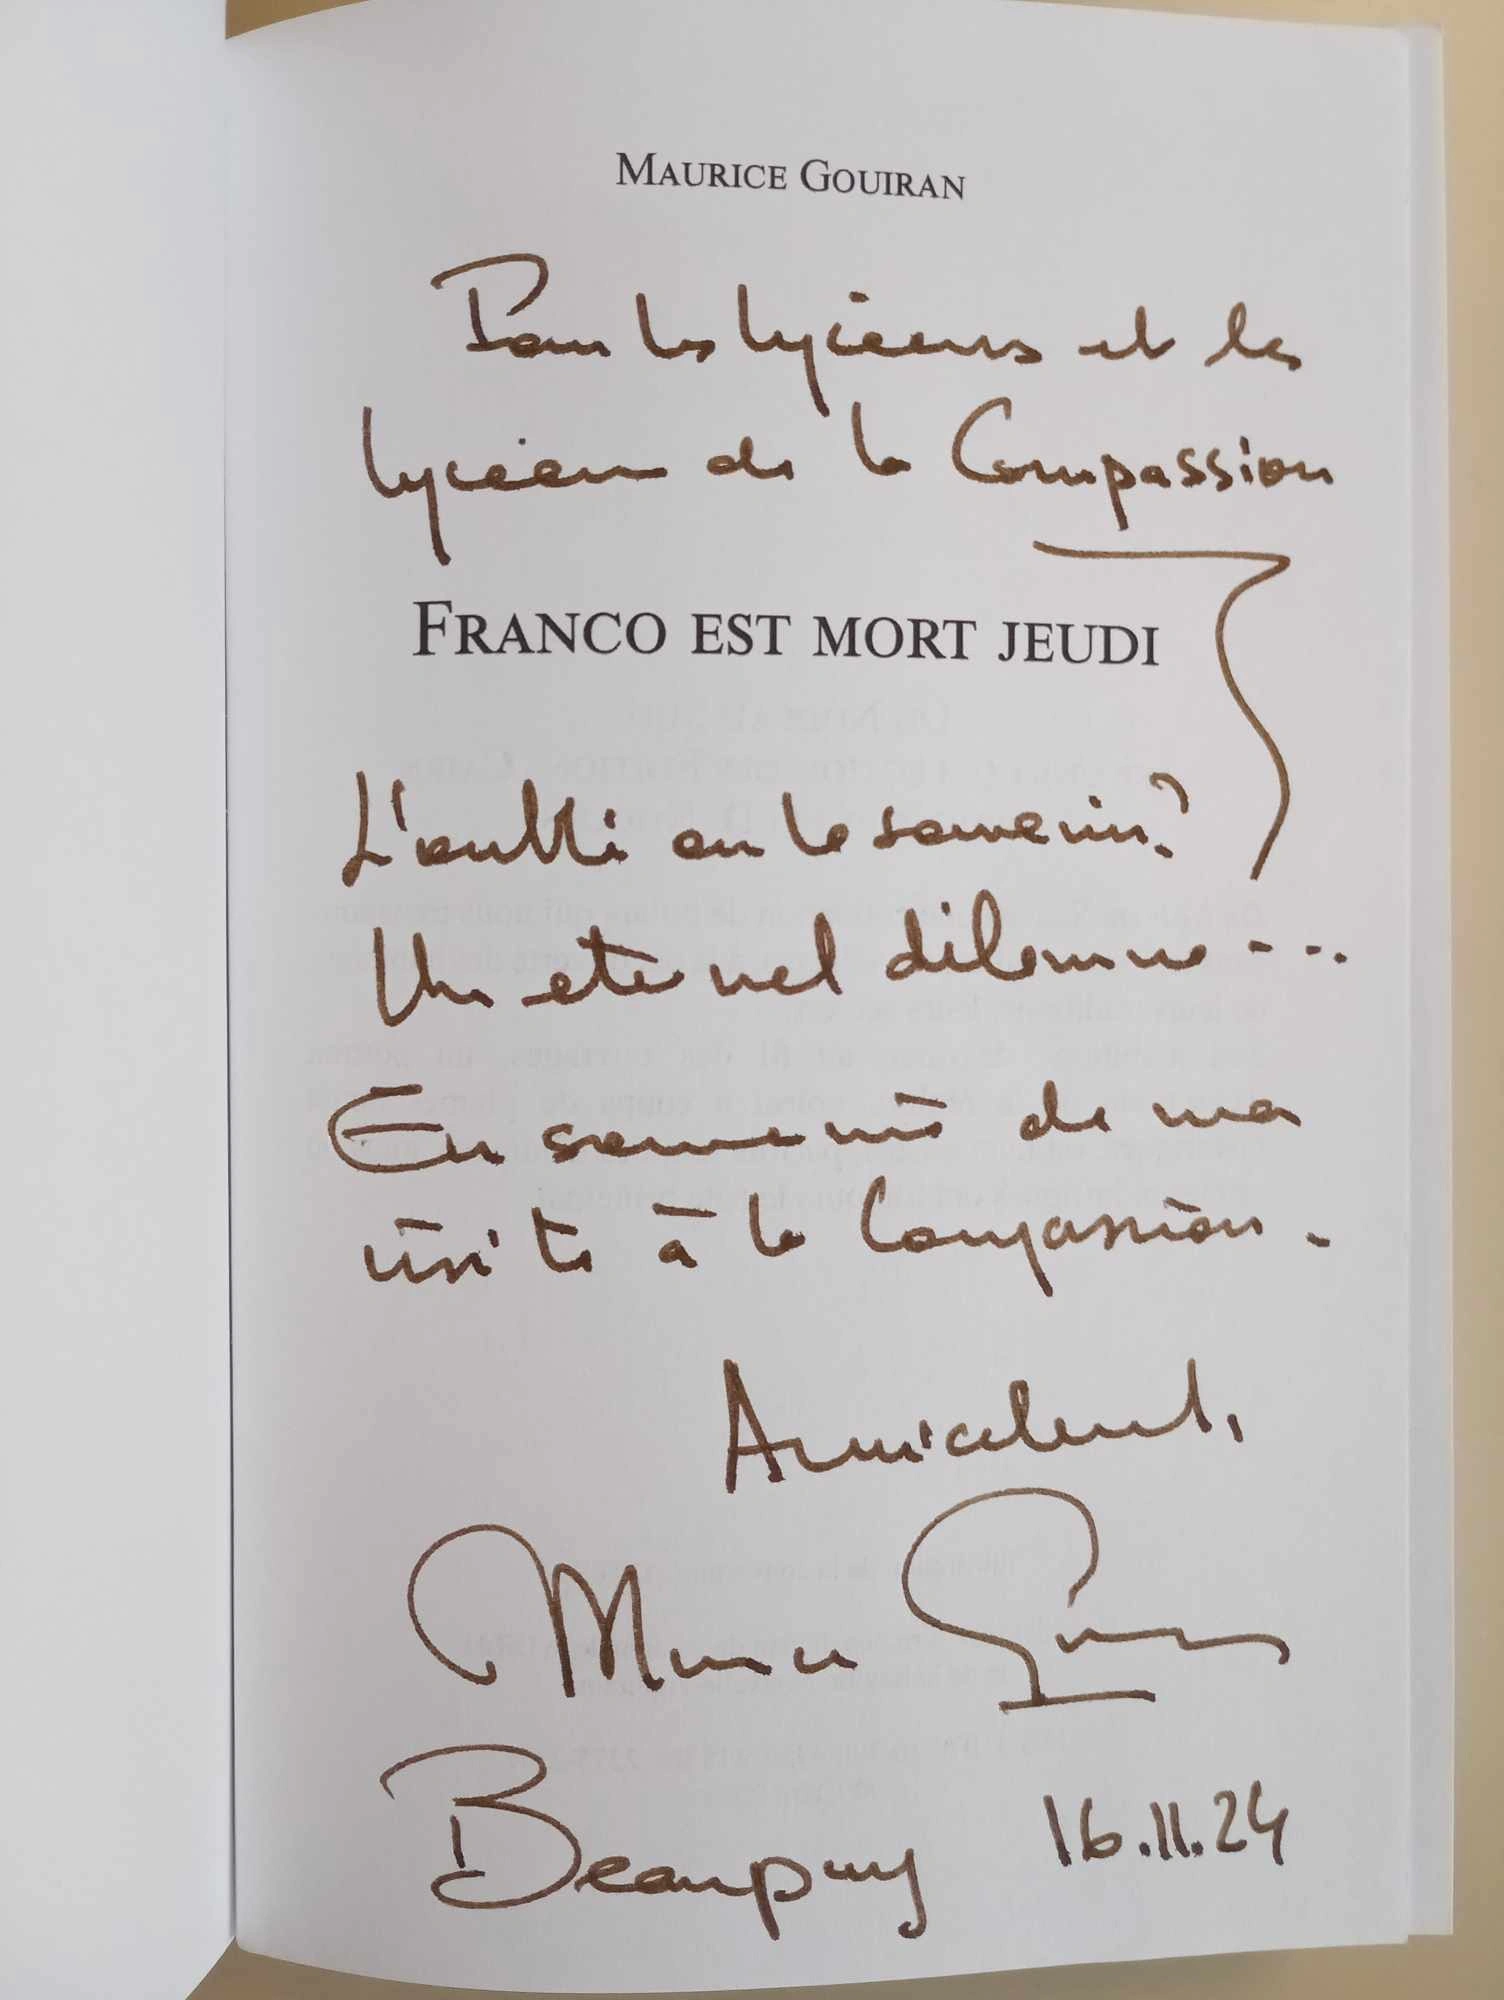 MAURICE GOUIRAN
Pour les lycéens et les
lycéens de la Compassion
FRANCO EST MORT JEUDI
L'oubli ou le souvenir?
Un éternel dilemme...
En souvenir de ma
visite à la Compassion.
Amicalement,
Maurice Gouiran
Beaupuy 16.11.24